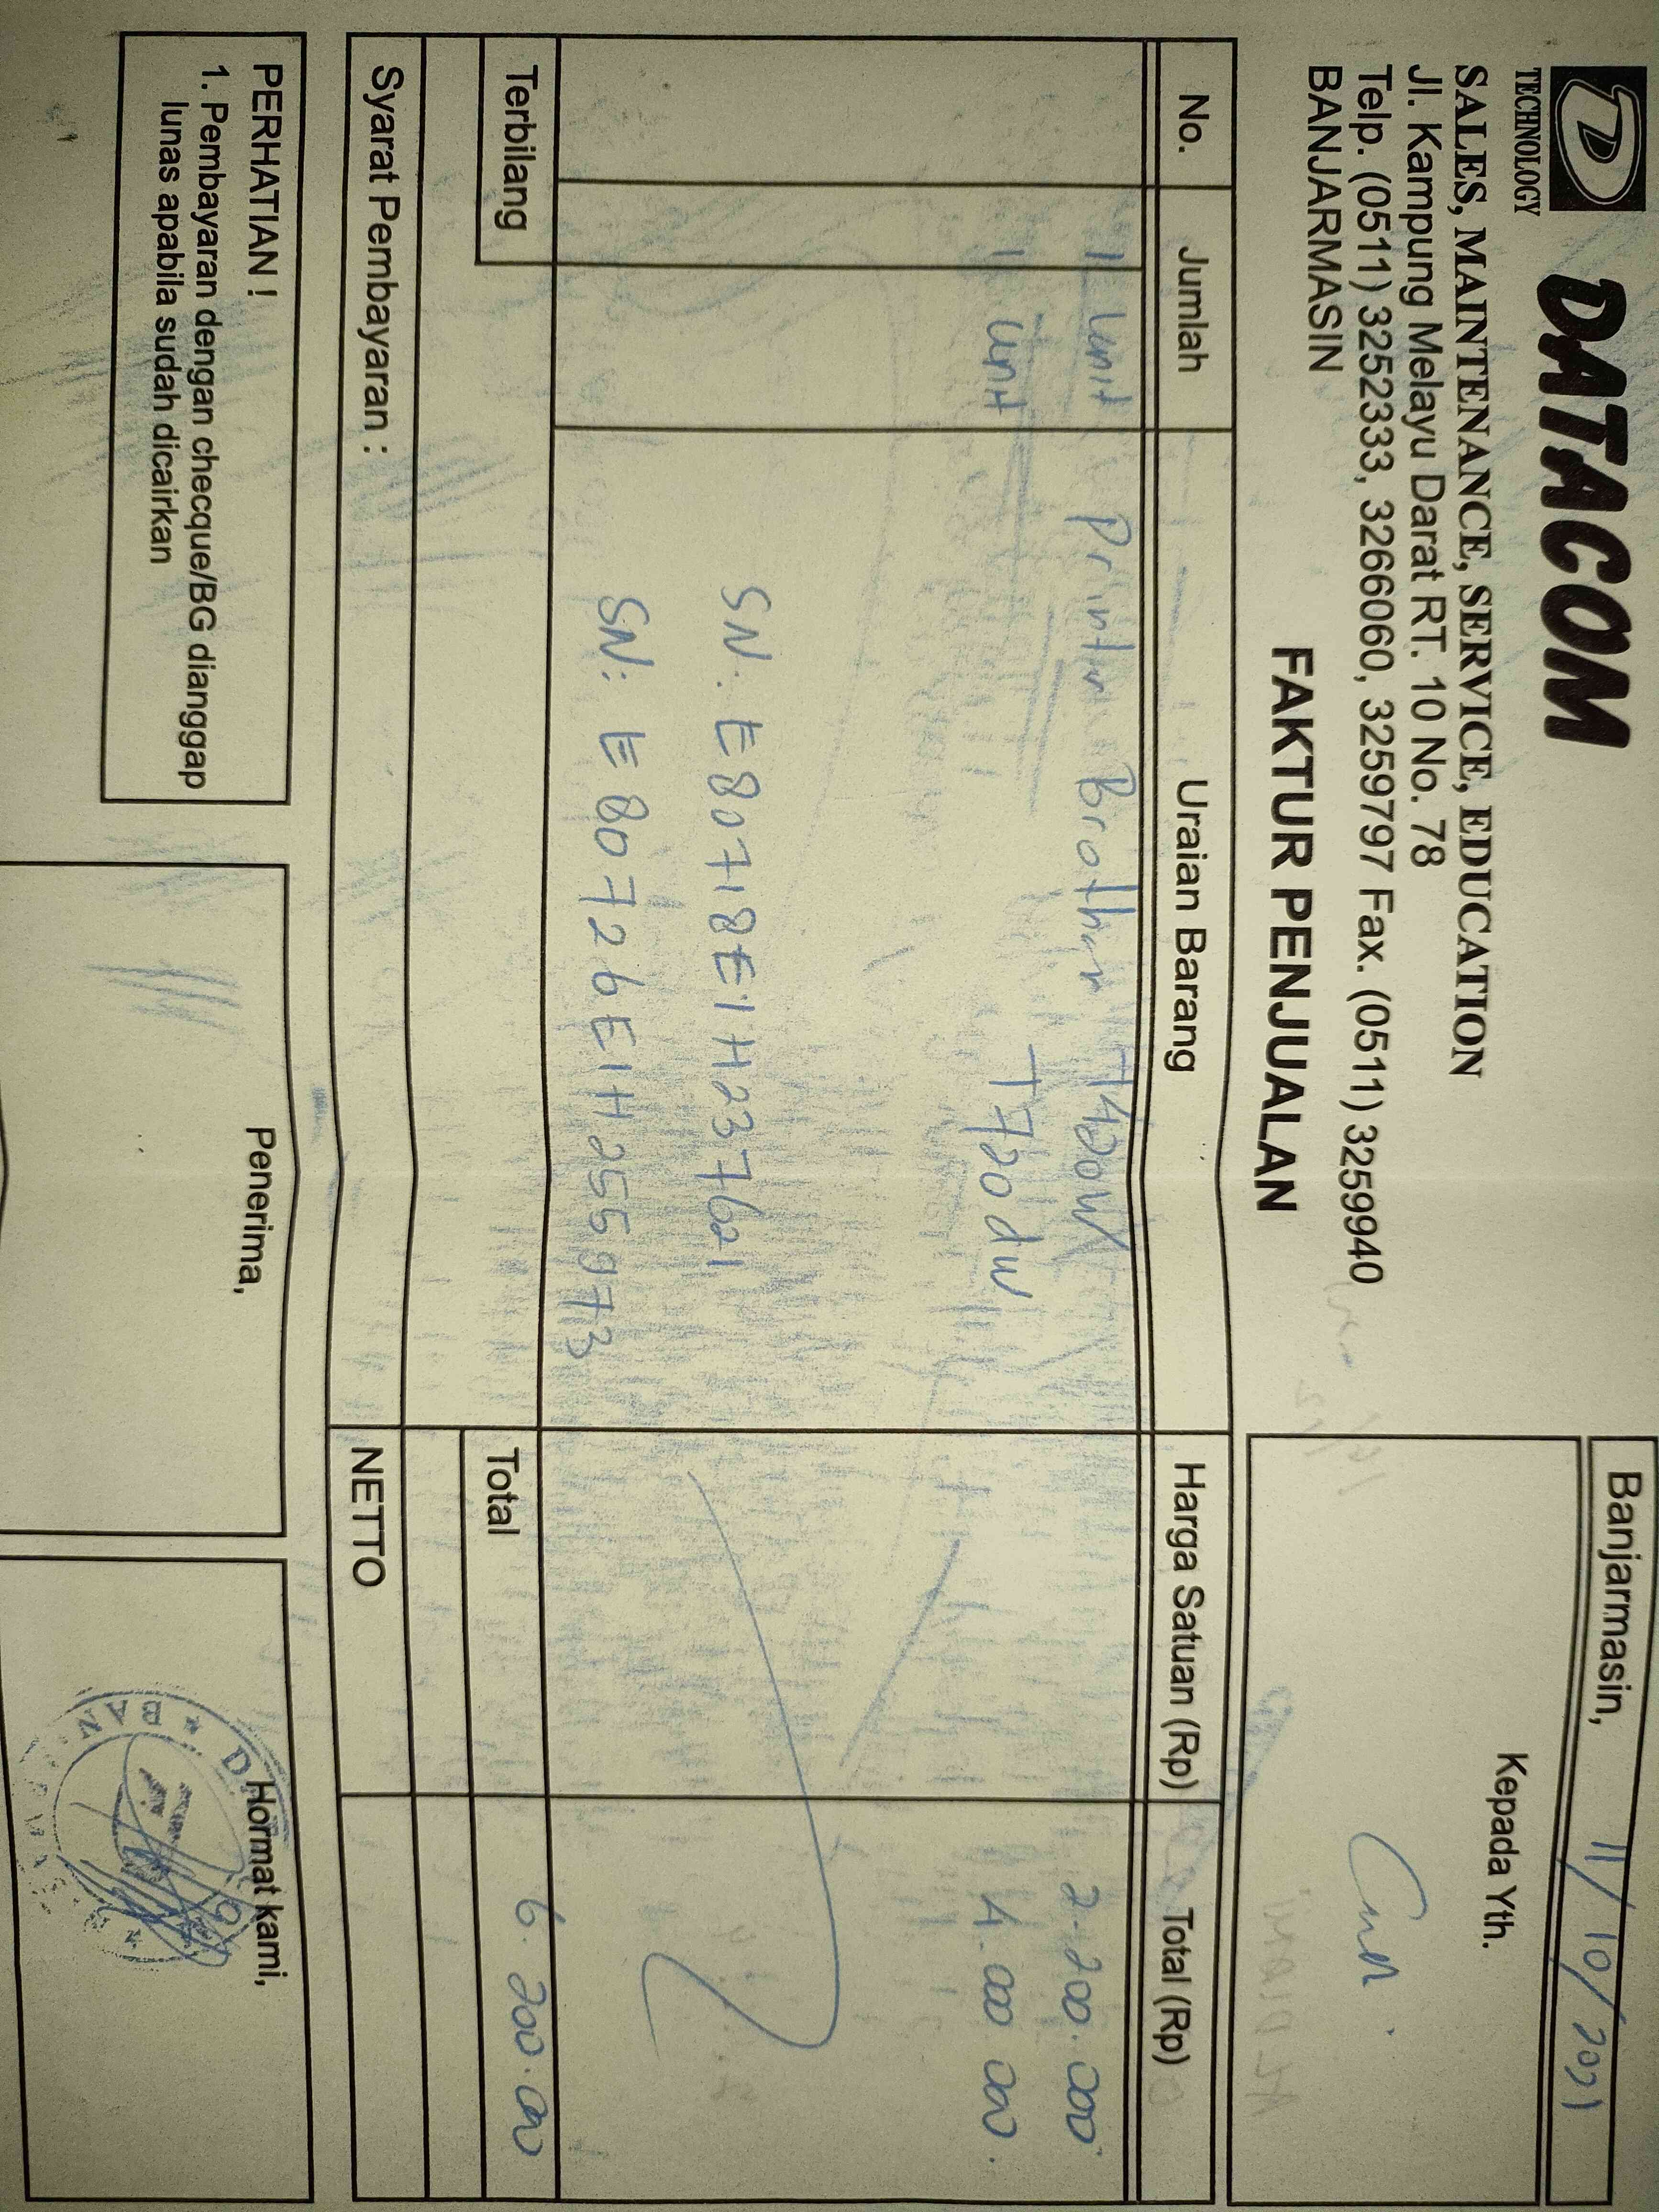 D
TECHNOLOGY
DATACOM
SALES, MAINTENANCE, SERVICE, EDUCATION
Jl. Kampung Melayu Darat RT. 10 No. 78
Telp. (0511) 3252333, 3266060, 3259797 Fax. (0511) 3259940
BANJARMASIN
FAKTUR PENJUALAN
Banjarmasin, 11/10/2021
Kepada Yth.
No. Jumlah Uraian Barang Harga Satuan (Rp) Total (Rp)
1 unit Printer Brother T420W 2.200.000
1 unit T720 dw 4.000.000
SN: E80718E1H237621
SN: E80726E1H255973
Terbilang Total 6.200.000
Syarat Pembayaran : NETTO
PERHATIAN !
1. Pembayaran dengan checque/BG dianggap
lunas apabila sudah dicairkan
Penerima,
Hormat kami,